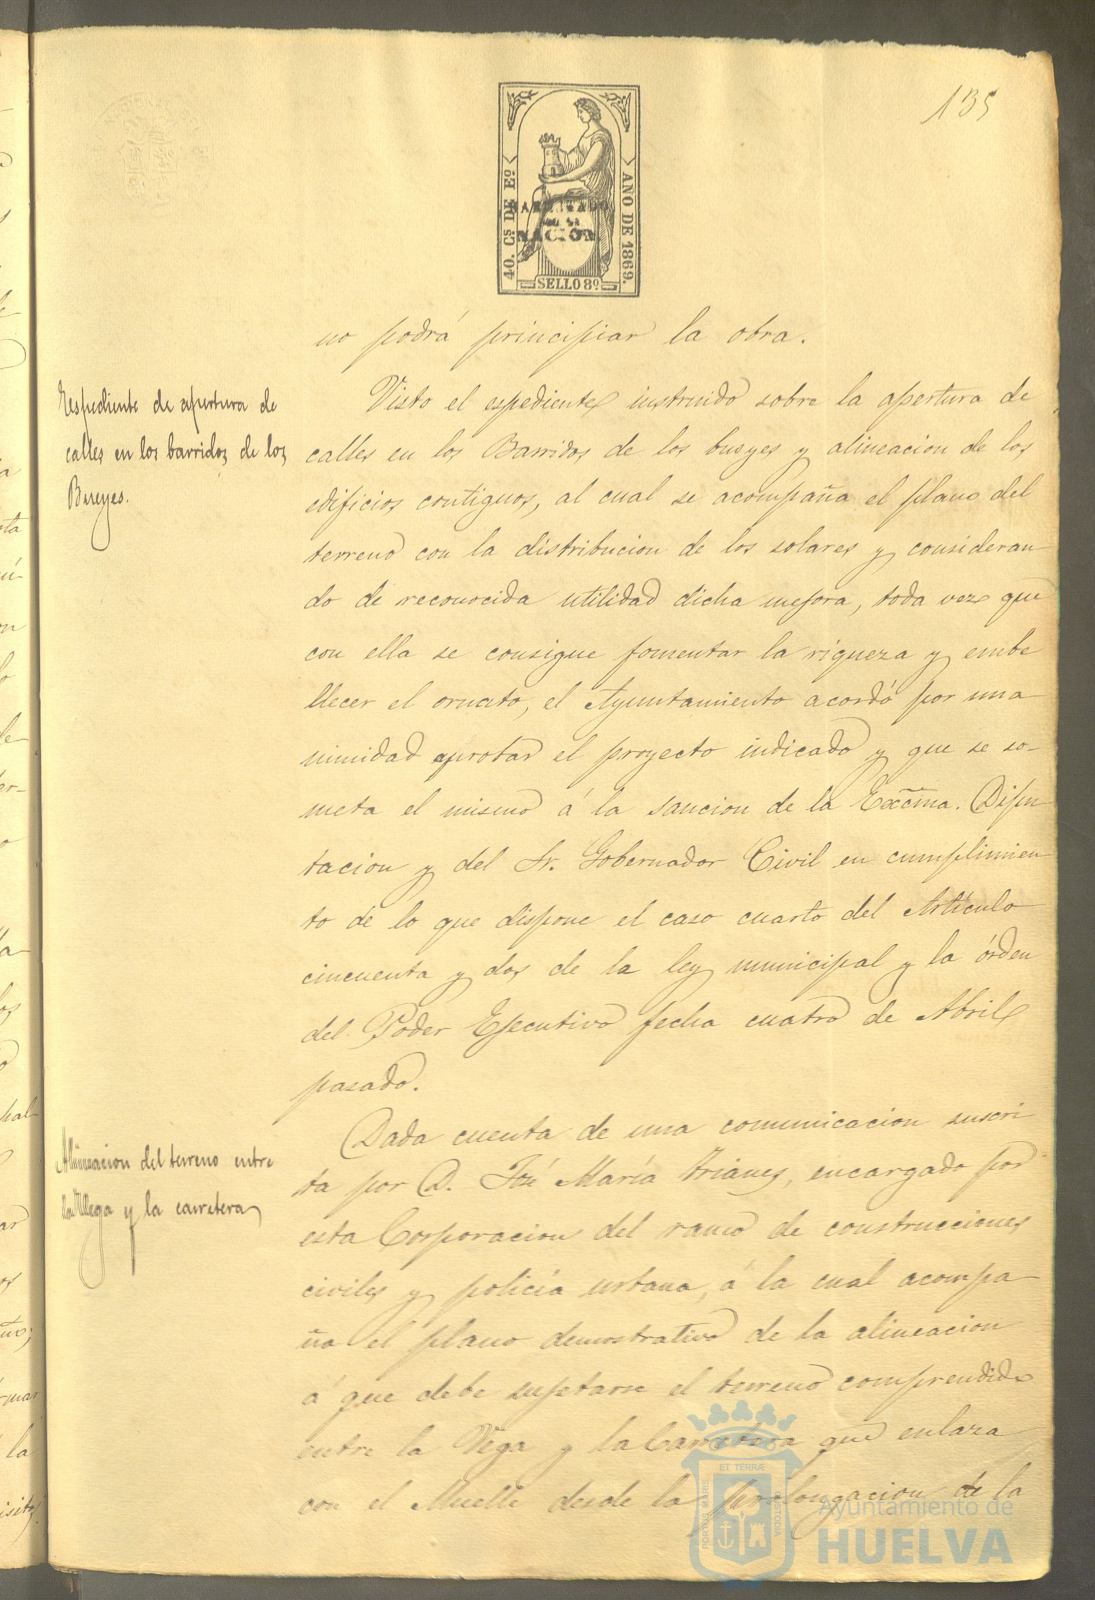 135
40. Cs DE Eo
AÑO DE 1869.
HABILITADO
POR LA
NACION.
SELLO 8º
no podrá principiar la obra.
Espediente de apertura de
calles en los barridos de los
Bueyes.
Visto el espediente instruido sobre la apertura de
calles en los Barridos de los bueyes y alineacion de los
edificios contiguos, al cual se acompaña el plano del
terreno con la distribucion de los solares y consideran
do de reconocida utilidad dicha mejora, toda vez que
con ella se consigue fomentar la riqueza y embe
llecer el ornato, el Ayuntamiento acordó por una
nimidad aprobar el proyecto indicado y que se so-
meta el mismo á la sancion de la Excma. Dipu
tacion y del Sr. Gobernador Civil en cumplimien
to de lo que dispone el caso cuarto del Artículo
cincuenta y dos de la ley municipal y la órden
del Poder Ejecutivo fecha cuatro de Abril
pasado.
Alineacion del terreno entre
la Vega y la carretera
Dada cuenta de una comunicacion suscri
ta por D. José María Trianes, encargado por
esta Corporacion del ramo de construcciones
civiles y policía urbana, á la cual acompa
ña el plano demostrativo de la alineacion
á que debe sujetarse el terreno comprendido
entre la Vega y la Carretera que enlaza
con el Muelle desde la prolongacion de la
Ayuntamiento de
HUELVA